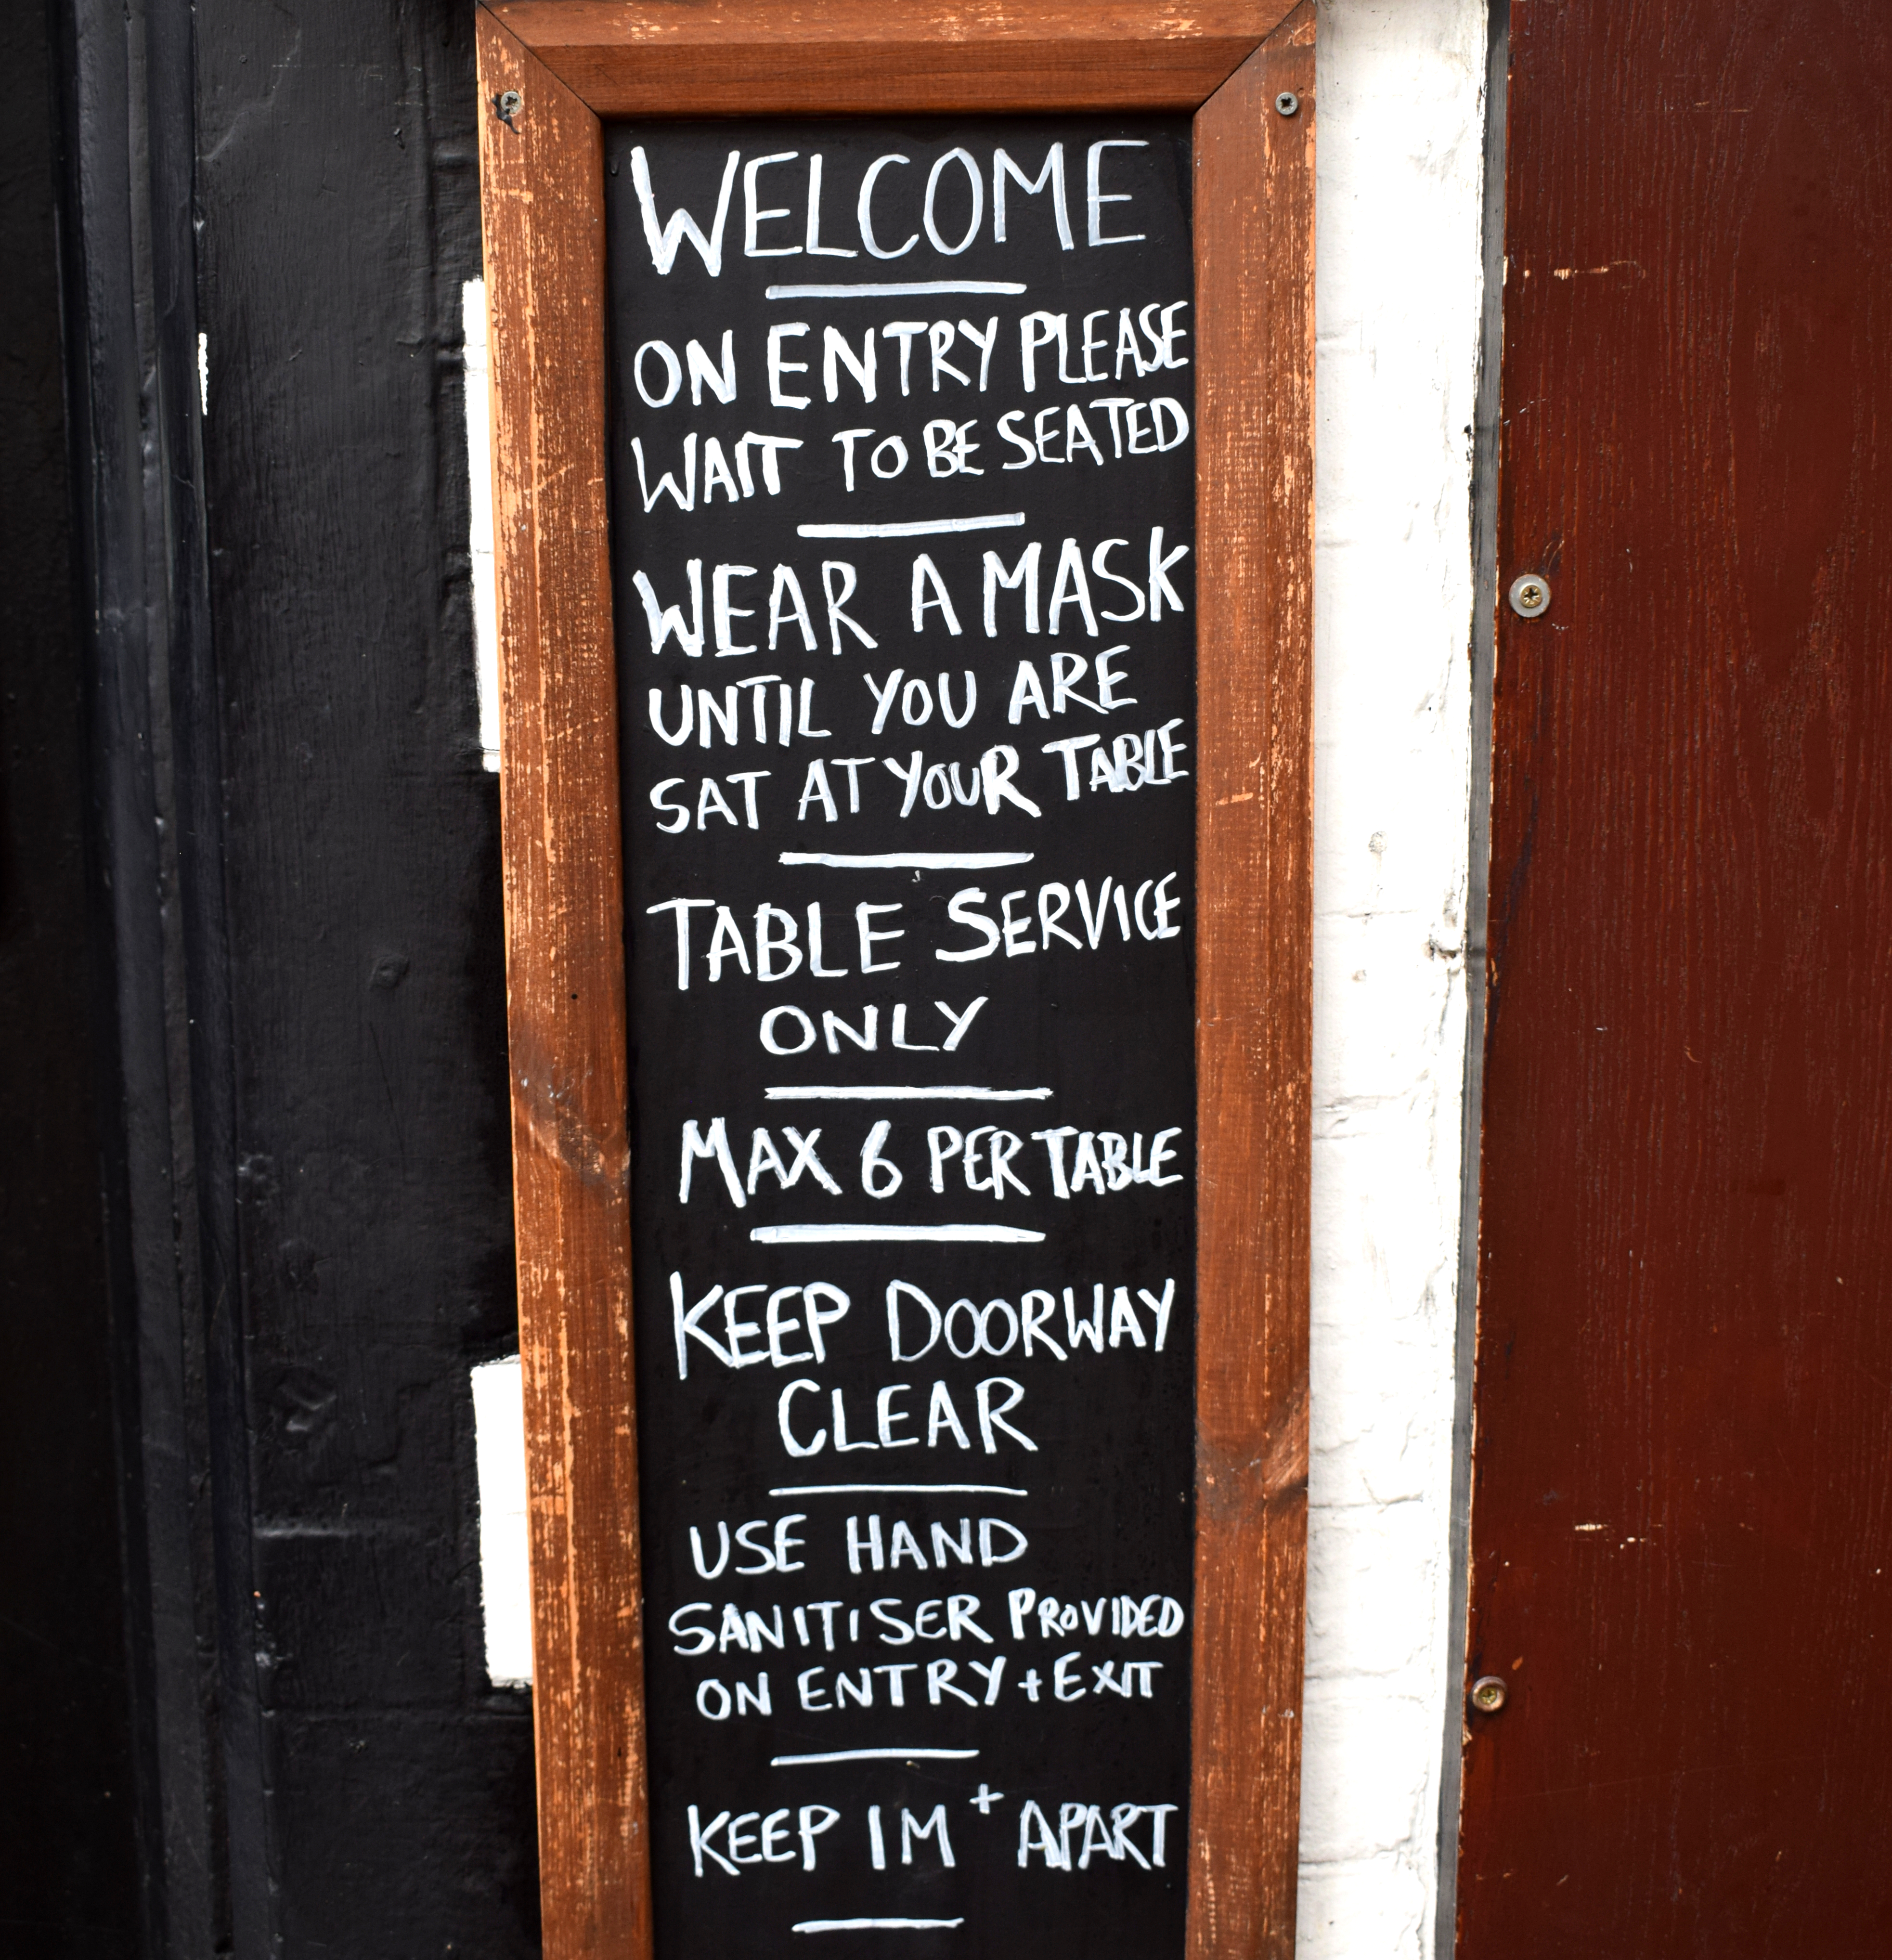 WELCOME
ON ENTRY PLEASE
WAIT TO BE SEATED
WEAR A MASK
UNTIL YOU ARE
SAT AT YOUR TABLE
TABLE SERVICE
ONLY
MAX 6 PER TABLE
KEEP DOORWAY
CLEAR
USE HAND
SANITISER PROVIDED
ON ENTRY + EXIT
KEEP 1M + APART